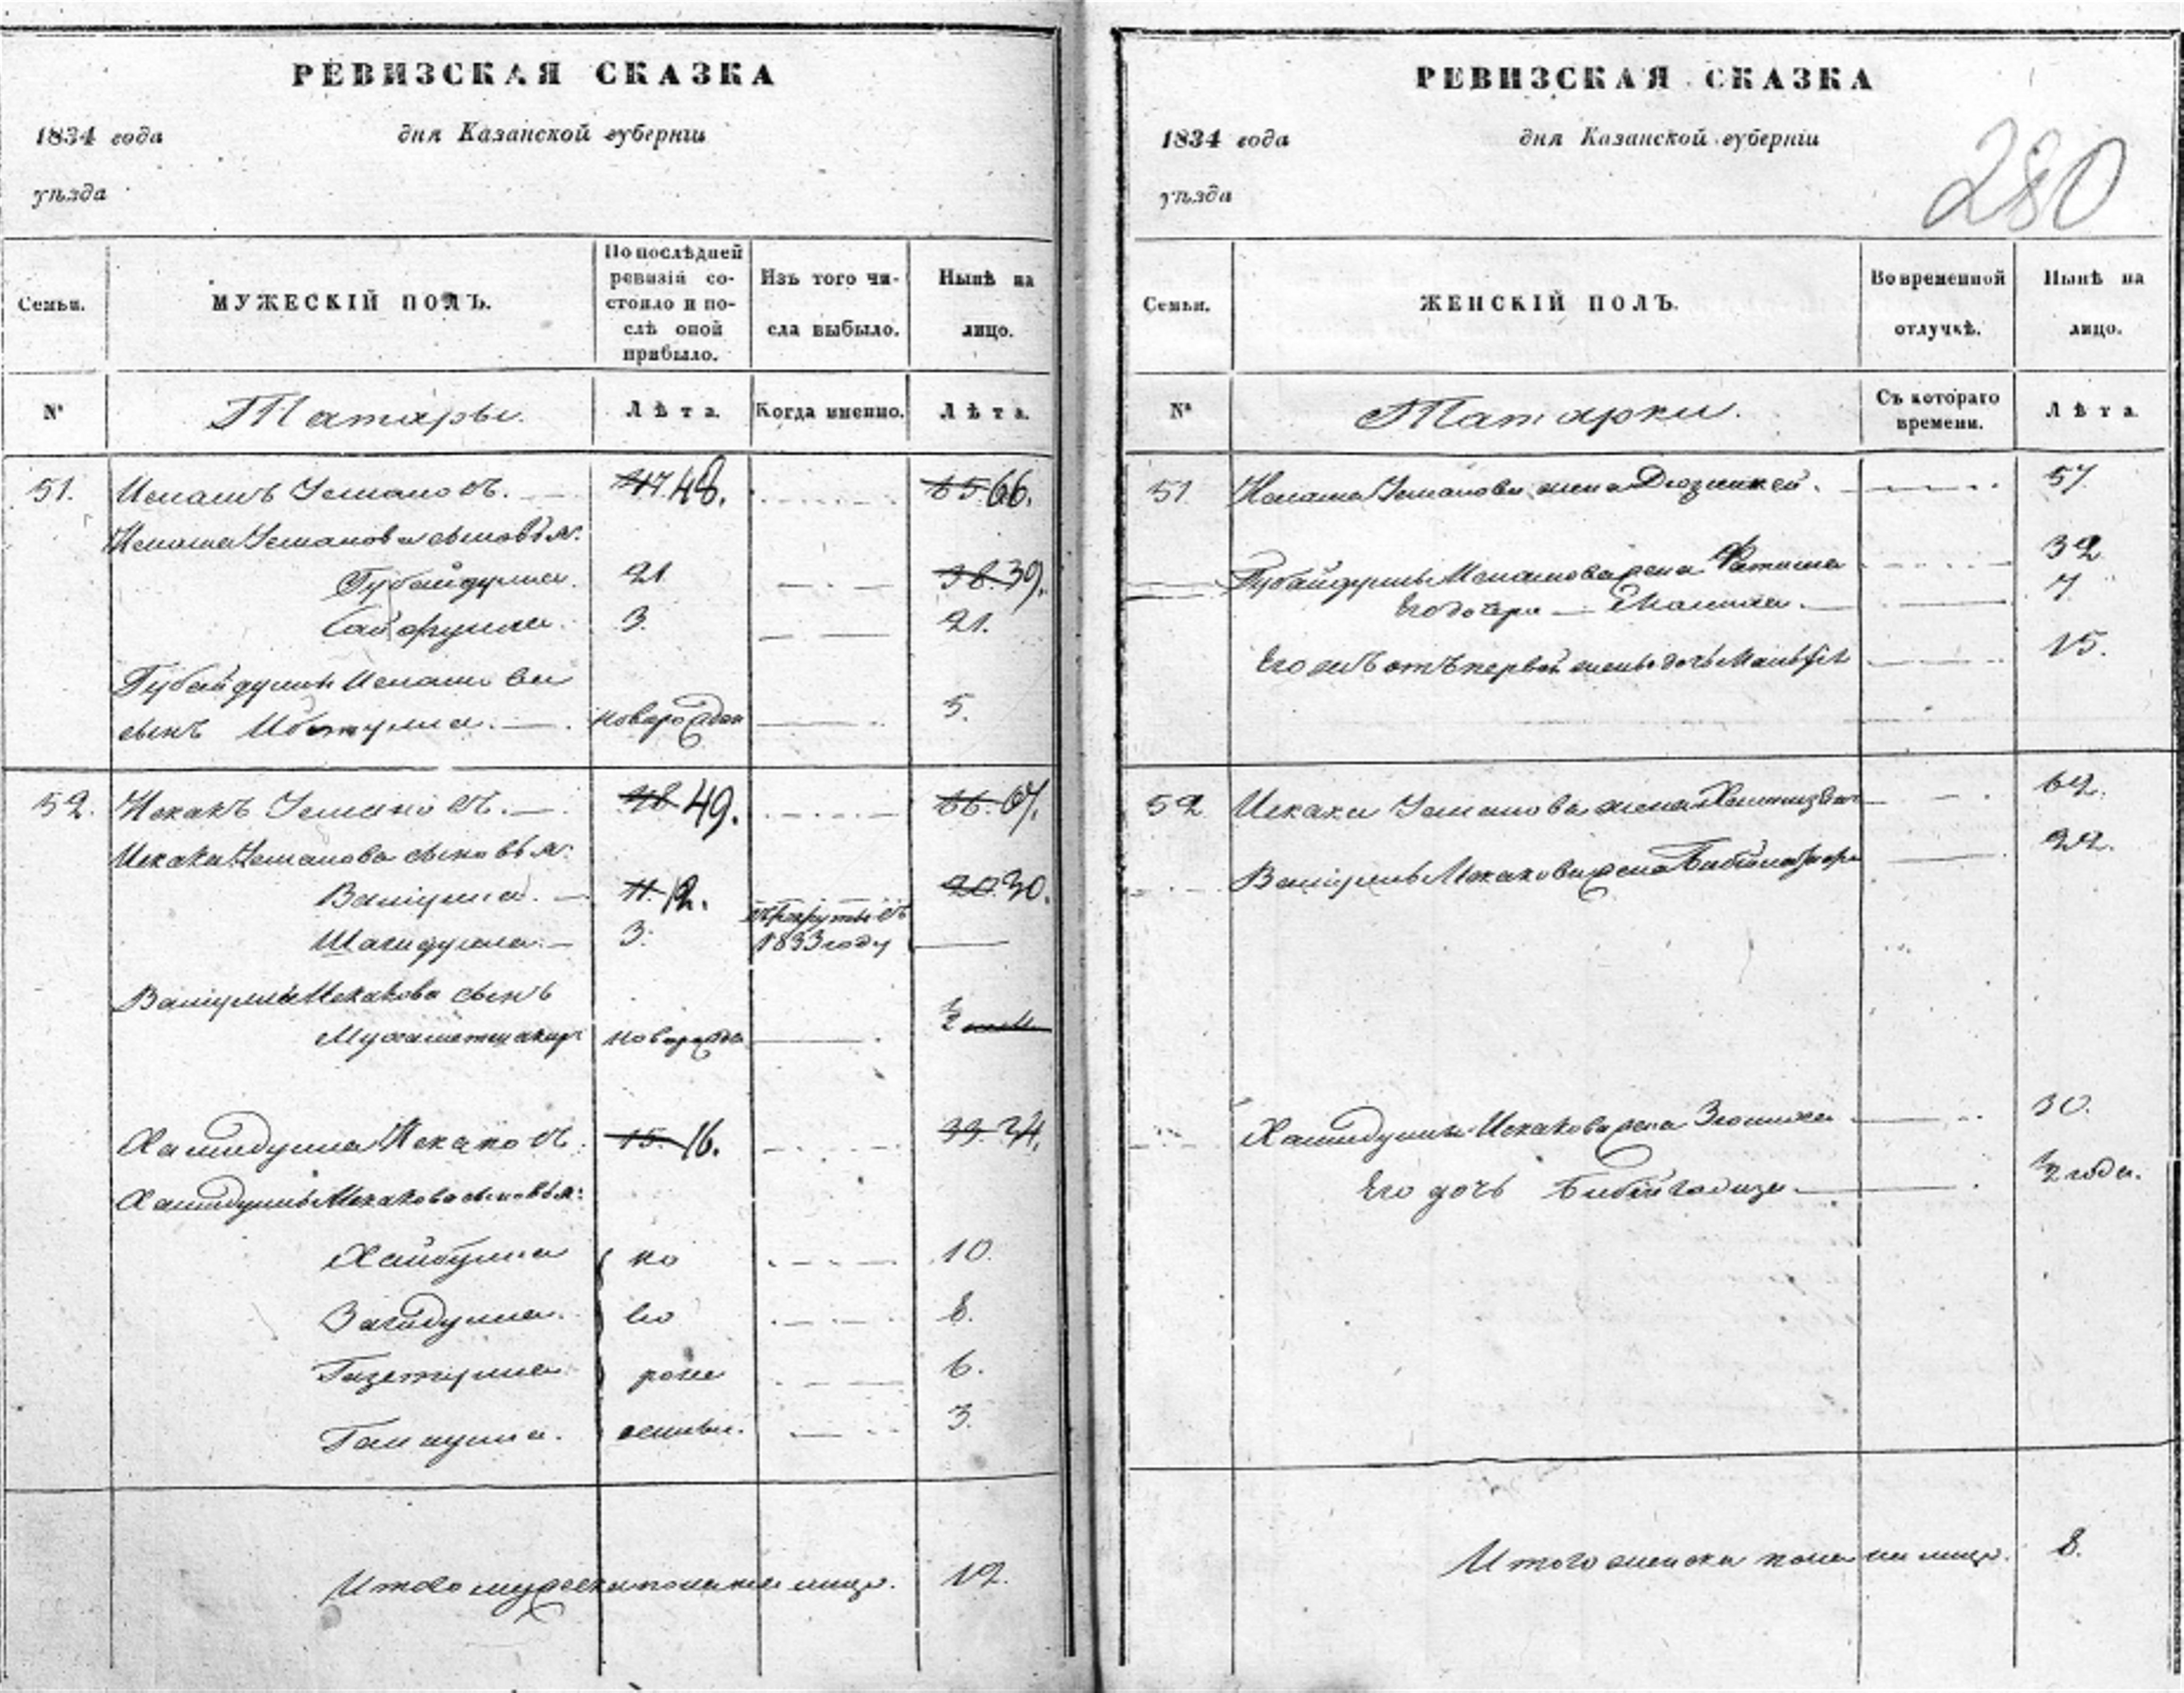 РЕВИЗСКАЯ СКАЗКА
1834 года дня Казанской губернiи
уѣзда
Семьи.
МУЖЕСКІЙ ПОЛЪ.
По послѣдней ревизіи состояло и послѣ оной прибыло.
Изъ того числа выбыло.
Нынѣ на лицо.
№
Татары.
Лѣта.
Когда именно.
Лѣта.
51. Исмаилъ Усмановъ. 47 48. 65 66.
Усманова сыновья:
Губайдулла. 21 38. 39.
Сайфулла. 3. 21.
Губайдуллы
сынъ новорожден 5.
52. Искакъ Усмановъ. 48 49. 66. 67.
Искака Усманова сыновья:
Валиулла. 11. 12. 30.
Шагидулла. 3. въ рекруты въ 1833 году
Валиуллы Искакова сынъ
Мухаметшакир новорожден 1/2
Хамидулла Искаковъ. 15. 16. 33. 34.
Хамидуллы Искакова сыновья:
Хайбулла но 10.
Загидулла. во 8.
рожд 6.
3.
Итого мужеска пола на лицо. 12.
РЕВИЗСКАЯ СКАЗКА
1834 года дня Казанской губернiи
уѣзда
280
Семьи.
ЖЕНСКІЙ ПОЛЪ.
Во временной отлучкѣ.
Нынѣ на лицо.
№
Татарки.
Съ котораго времени.
Лѣта.
51 Усманова жена 57.
Губайдуллы жена Фатима 32
Его дочери 7.
Его же отъ первой жены дочь 15.
52 Искака Усманова жена 62.
Валиуллы Искакова жена 22.
Хамидуллы Искакова жена 30.
Его дочь 1/2 года.
Итого женска пола на лицо. 8.